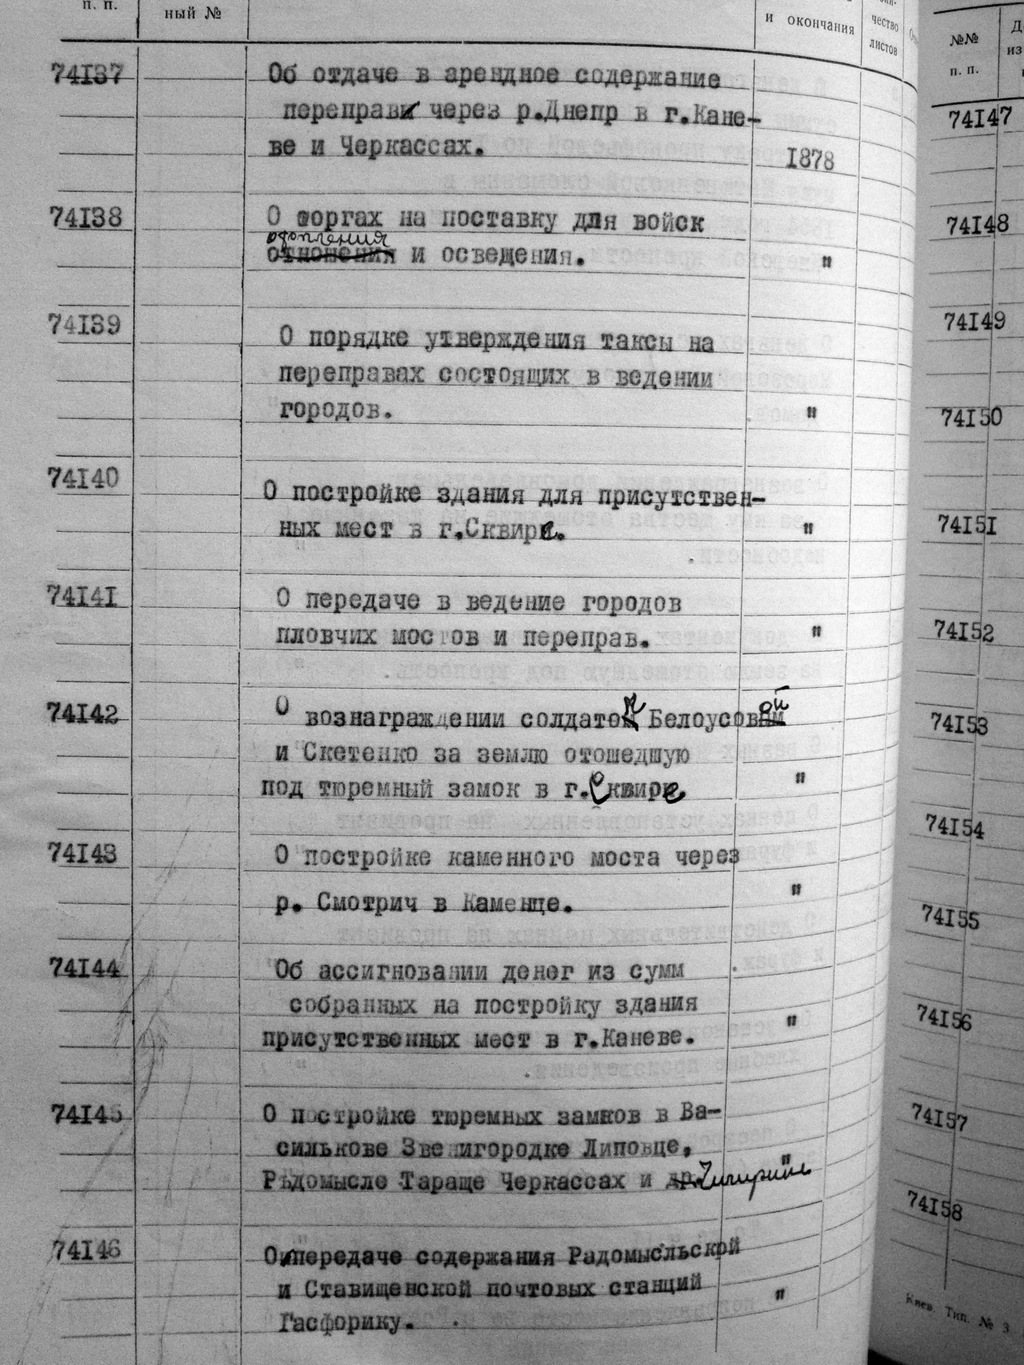 п. п.
ный №
и окончания
чество
листов
74I37
Об отдаче в арендное содержание
переправ через р.Днепр в г.Кане-
ве и Черкассах.
I878
74I38
О торгах на поставку для войск
отопления
отношения и освещения.
"
74I39
О порядке утверждения таксы на
переправах состоящих в ведении
городов.
"
74I40
О постройке здания для присутствен-
ных мест в г.Сквире.
"
74I4I
О передаче в ведение городов
пловчих мостов и переправ.
"
74I42
О вознаграждении солдаток Белоусовой
и Скетенко за землю отошедшую
под тюремный замок в г.Сквире
"
74I43
О постройке каменного моста через
р. Смотрич в Каменце.
"
74I44
Об ассигновании денег из сумм
собранных на постройку здания
присутственных мест в г.Каневе.
"
74I45
О п стройке тюремных замков в Ва-
силькове Звенигородке Липовце,
Радомысле Тараще Черкассах и др.Чигирине
"
74I46
О передаче содержания Радомысльской
и Ставищенской почтовых станций
Гасфорику.
"
№№
п. п.
Д
из
74I47
74I48
74I49
74I50
74I5I
74I52
74I53
74I54
74I55
74I56
74I57
74I58
Киев. Тип. № 3